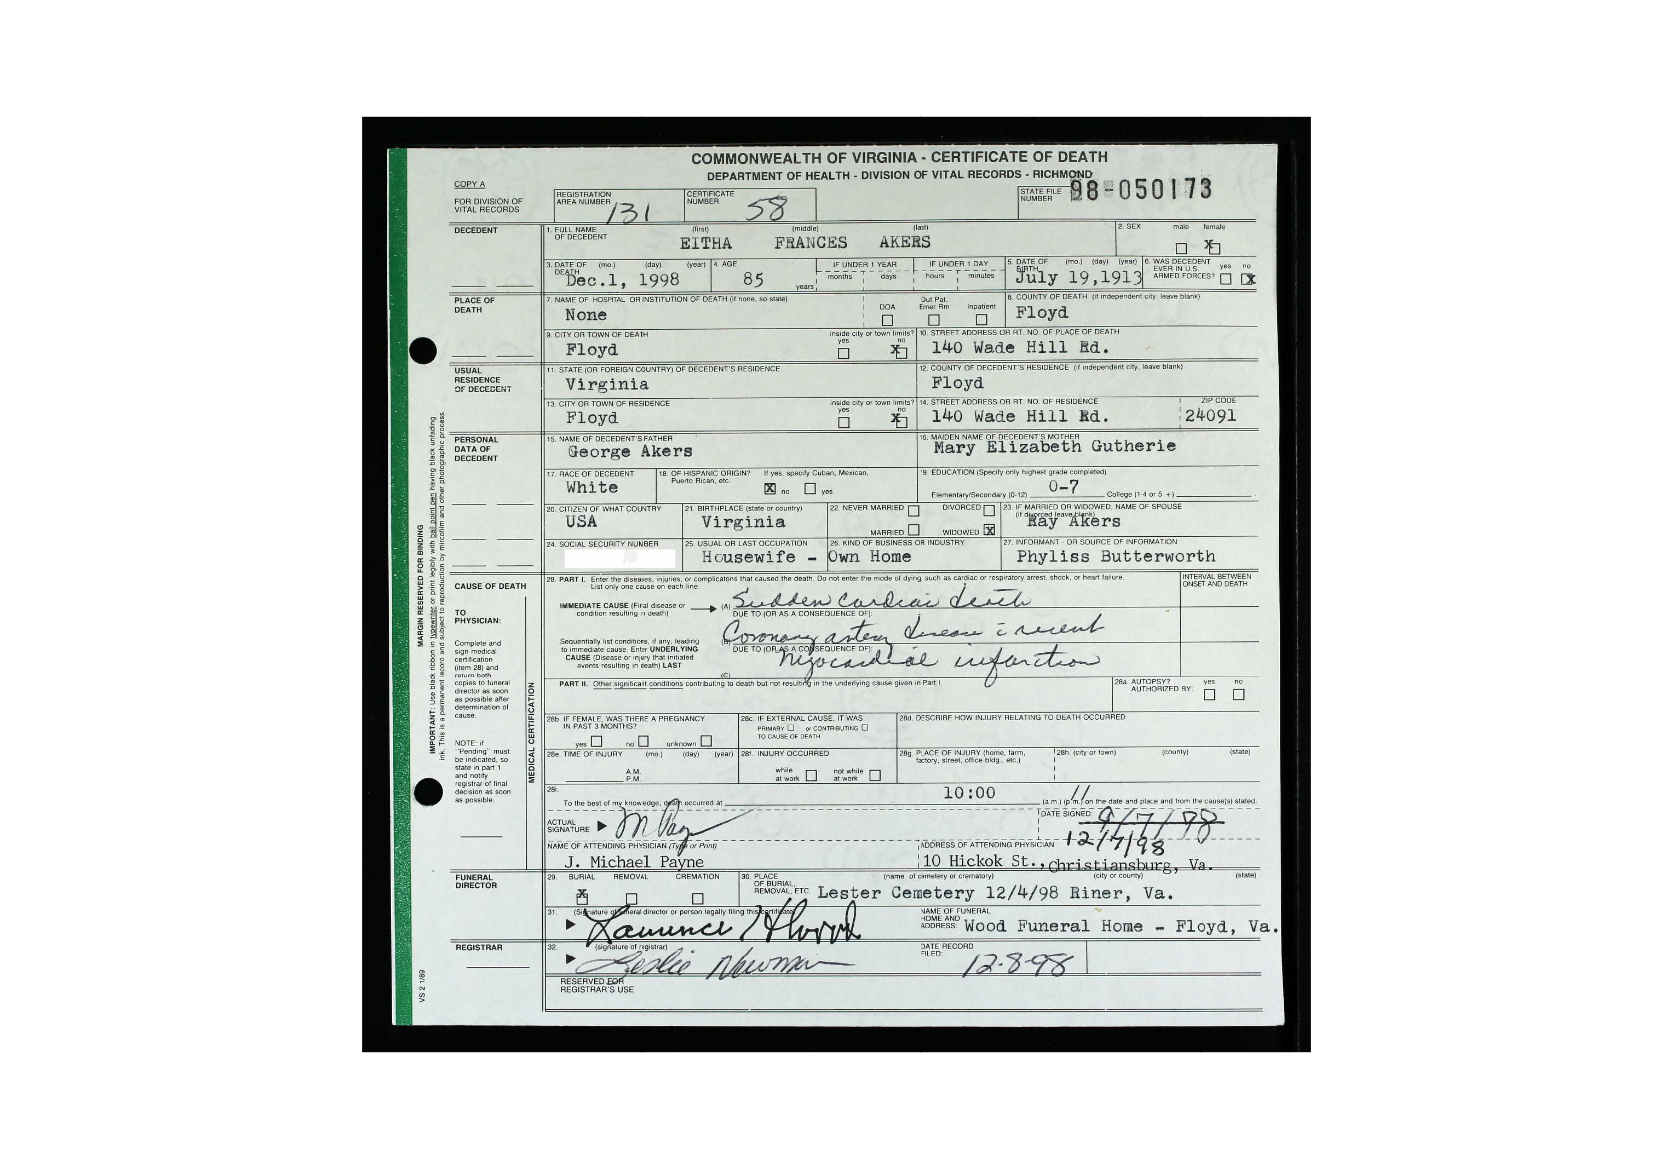 COMMONWEALTH OF VIRGINIA - CERTIFICATE OF DEATH
DEPARTMENT OF HEALTH - DIVISION OF VITAL RECORDS - RICHMOND
COPY A
FOR DIVISION OF VITAL RECORDS
REGISTRATION AREA NUMBER 131
CERTIFICATE NUMBER 58
STATE FILE NUMBER 98-050173
DECEDENT
1. FULL NAME OF DECEDENT (first) (middle) (last)
EITHA FRANCES AKERS
2. SEX male female X
3. DATE OF DEATH (mo.) (day) (year) Dec.1, 1998
4. AGE 85 years
IF UNDER 1 YEAR months days
IF UNDER 1 DAY hours minutes
5. DATE OF BIRTH (mo.) (day) (year) July 19,1913
6. WAS DECEDENT EVER IN U.S. ARMED FORCES? yes no X
PLACE OF DEATH
7. NAME OF HOSPITAL OR INSTITUTION OF DEATH (if none, so state) None
DOA Out Pat. Emer Rm Inpatient
8. COUNTY OF DEATH (if independent city, leave blank) Floyd
9. CITY OR TOWN OF DEATH Floyd
inside city or town limits? yes no X
10. STREET ADDRESS OR RT. NO. OF PLACE OF DEATH 140 Wade Hill Rd.
USUAL RESIDENCE OF DECEDENT
11. STATE (OR FOREIGN COUNTRY) OF DECEDENT'S RESIDENCE Virginia
12. COUNTY OF DECEDENT'S RESIDENCE (if independent city, leave blank) Floyd
13. CITY OR TOWN OF RESIDENCE Floyd
inside city or town limits? yes no X
14. STREET ADDRESS OR RT. NO. OF RESIDENCE 140 Wade Hill Rd.
ZIP CODE 24091
PERSONAL DATA OF DECEDENT
15. NAME OF DECEDENT'S FATHER George Akers
16. MAIDEN NAME OF DECEDENT'S MOTHER Mary Elizabeth Gutherie
17. RACE OF DECEDENT White
18. OF HISPANIC ORIGIN? If yes, specify Cuban, Mexican, Puerto Rican, etc. X no yes
19. EDUCATION (Specify only highest grade completed)
Elementary/Secondary (0-12) 0-7 College (1-4 or 5 +)
20. CITIZEN OF WHAT COUNTRY USA
21. BIRTHPLACE (state or country) Virginia
22. NEVER MARRIED DIVORCED MARRIED WIDOWED X
23. IF MARRIED OR WIDOWED, NAME OF SPOUSE (if divorced leave blank) Ray Akers
24. SOCIAL SECURITY NUMBER
25. USUAL OR LAST OCCUPATION Housewife -
26. KIND OF BUSINESS OR INDUSTRY Own Home
27. INFORMANT - OR SOURCE OF INFORMATION Phyliss Butterworth
CAUSE OF DEATH
TO PHYSICIAN:
Complete and sign medical certification (item 28) and return both copies to funeral director as soon as possible after determination of cause.
NOTE: if "Pending" must be indicated, so state in part 1 and notify registrar of final decision as soon as possible.
MEDICAL CERTIFICATION
28. PART I. Enter the diseases, injuries, or complicatons that caused the death. Do not enter the mode of dying such as cardiac or respiratory arrest, shock, or heart failure.
List only one cause on each line.
INTERVAL BETWEEN ONSET AND DEATH
IMMEDIATE CAUSE (Final disease or condition resulting in death) (A) Sudden cardiac death
DUE TO (OR AS A CONSEQUENCE OF):
Sequentially list conditions, if any, leading to immediate cause. Enter UNDERLYING CAUSE (Disease or injury that initiated events resulting in death) LAST
(B) Coronary artery disease c̄ recent
DUE TO (OR AS A CONSEQUENCE OF):
myocardial infarction
(C)
PART II. Other significant conditions contributing to death but not resulting in the underlying cause given in Part I.
28a. AUTOPSY? AUTHORIZED BY: yes no
28b. IF FEMALE, WAS THERE A PREGNANCY IN PAST 3 MONTHS? yes no unknown
28c. IF EXTERNAL CAUSE, IT WAS PRIMARY or CONTRIBUTING TO CAUSE OF DEATH
28d. DESCRIBE HOW INJURY RELATING TO DEATH OCCURRED
28e. TIME OF INJURY (mo.) (day) (year) A.M. P.M.
28f. INJURY OCCURRED while at work not while at work
28g. PLACE OF INJURY (home, farm, factory, street, office bldg., etc.)
28h. (city or town) (county) (state)
28i.
To the best of my knowledge, death occurred at 10:00 (a.m.) (p.m.) on the date and place and from the cause(s) stated.
ACTUAL SIGNATURE M Payne
DATE SIGNED: 9/7/98
12/7/98
NAME OF ATTENDING PHYSICIAN (Type or Print) J. Michael Payne
ADDRESS OF ATTENDING PHYSICIAN 10 Hickok St., Christiansburg, Va.
FUNERAL DIRECTOR
29. BURIAL X REMOVAL CREMATION
30. PLACE OF BURIAL, REMOVAL, ETC. (name of cemetery or crematory) (city or county) (state)
Lester Cemetery 12/4/98 Riner, Va.
31. (Signature of funeral director or person legally filing this certificate) Laurence H Wood
NAME OF FUNERAL HOME AND ADDRESS: Wood Funeral Home - Floyd, Va.
REGISTRAR
32. (signature of registrar) Leslie Newman
DATE RECORD FILED: 12-8-98
RESERVED FOR REGISTRAR'S USE
VS 2 1/89
MARGIN RESERVED FOR BINDING
IMPORTANT: Use black ribbon in typewriter or print legibly with ball point pen having black unfading
ink. This is a permanent record and subject to reproduction by microfilm and other photographic process.